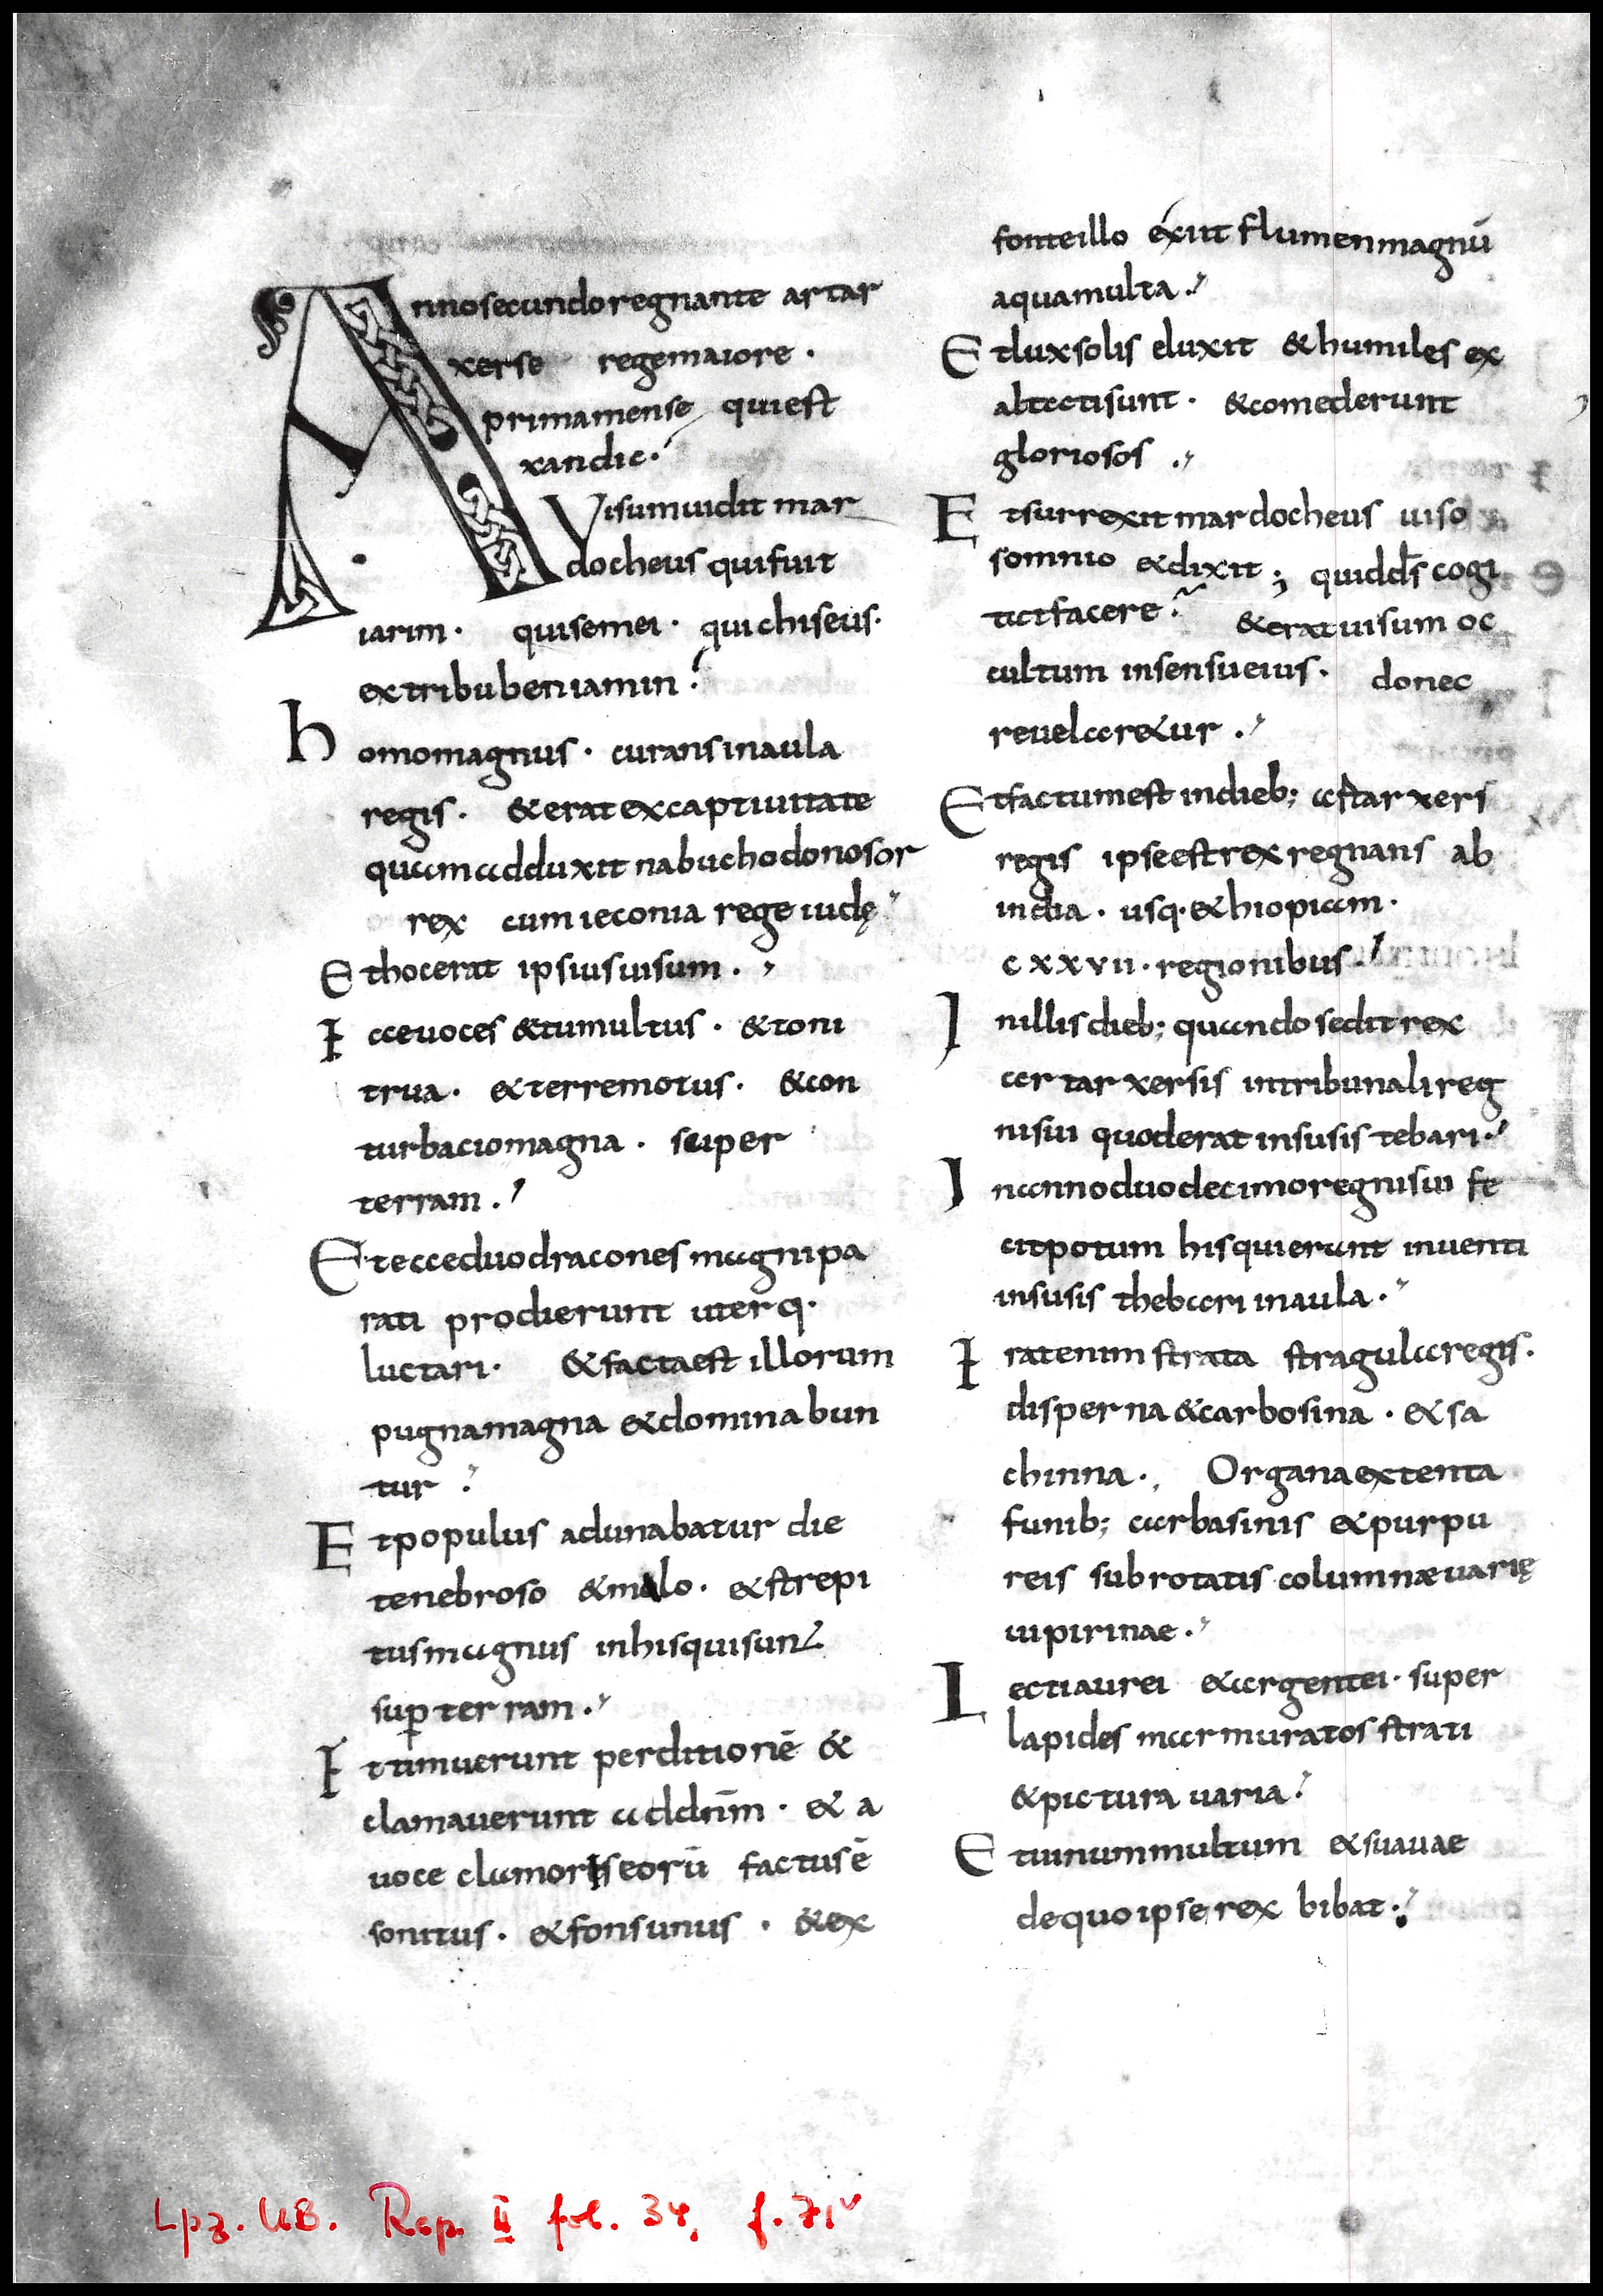 Annosecundoregnante artar
xerse regemaiore ·
primamense quiest
xandic·
Visumuidit mar
docheus quifuit
iarim · quisemei · quichiseus·
extribubeniamin
homomagnus · curansinaula
regis · &eratexcaptiuitate
quamadduxit nabuchodonosor
rex cum ieconia rege iudę
Ethocerat ipsiusuisum ·
Ecceuoces &tumultus · &toni
trua · &terremotus · &con
turbaciomagna · super
terram ·
Etecceduodracones magnipa
rati prodierunt uterq·
luctari · &factaest illorum
pugnamagna &dominabun
tur
Etpopulus adunabatur die
tenebroso &malo · &strepi
tusmagnus inhisquisunt
sup terram ·
Ettimuerunt perditionē &
clamauerunt addnm̄ · & a
uoce clamoriseorū factusē
sonitus · &fonsunus · &ex
fonteillo exiit flumenmagnū
aquamulta ·
Etluxsolis eluxit &humiles ex
altatisunt · &comederunt
gloriosos ·
Etsurrexitmardocheus uiso
somnio &dixit ; quidds̄ cogi
tatfacere &eratuisum oc
cultum insensueius · donec
reuelar&ur ·
Etfactumest indieb; astarxersi
regis ipseestrex regnans ab
india · usq·&hiopiam ·
cxxvii · regionibus ·
Inillisdieb; quando sedit rex
artarxersis intribunalireg
nisui quoderatinsusis tebari ·
Inannoduodecimoregnisui fe
citpotum hisquierant inuenti
insusis thebari inaula ·
Eratenim strata stragularegis ·
disperna &carbosina · &sa
chinna · Organaextenta
funib; carbasinis &purpu
reis subrotatis columnæuarię
uipirinae ·
Lectiaurei &argentei · super
lapides marmuratos strati
&pictura uaria
Etuinummultum &suauae
dequoipse rex bibat ·
Lpz. UB. Rep. II fol. 34, f. 71v